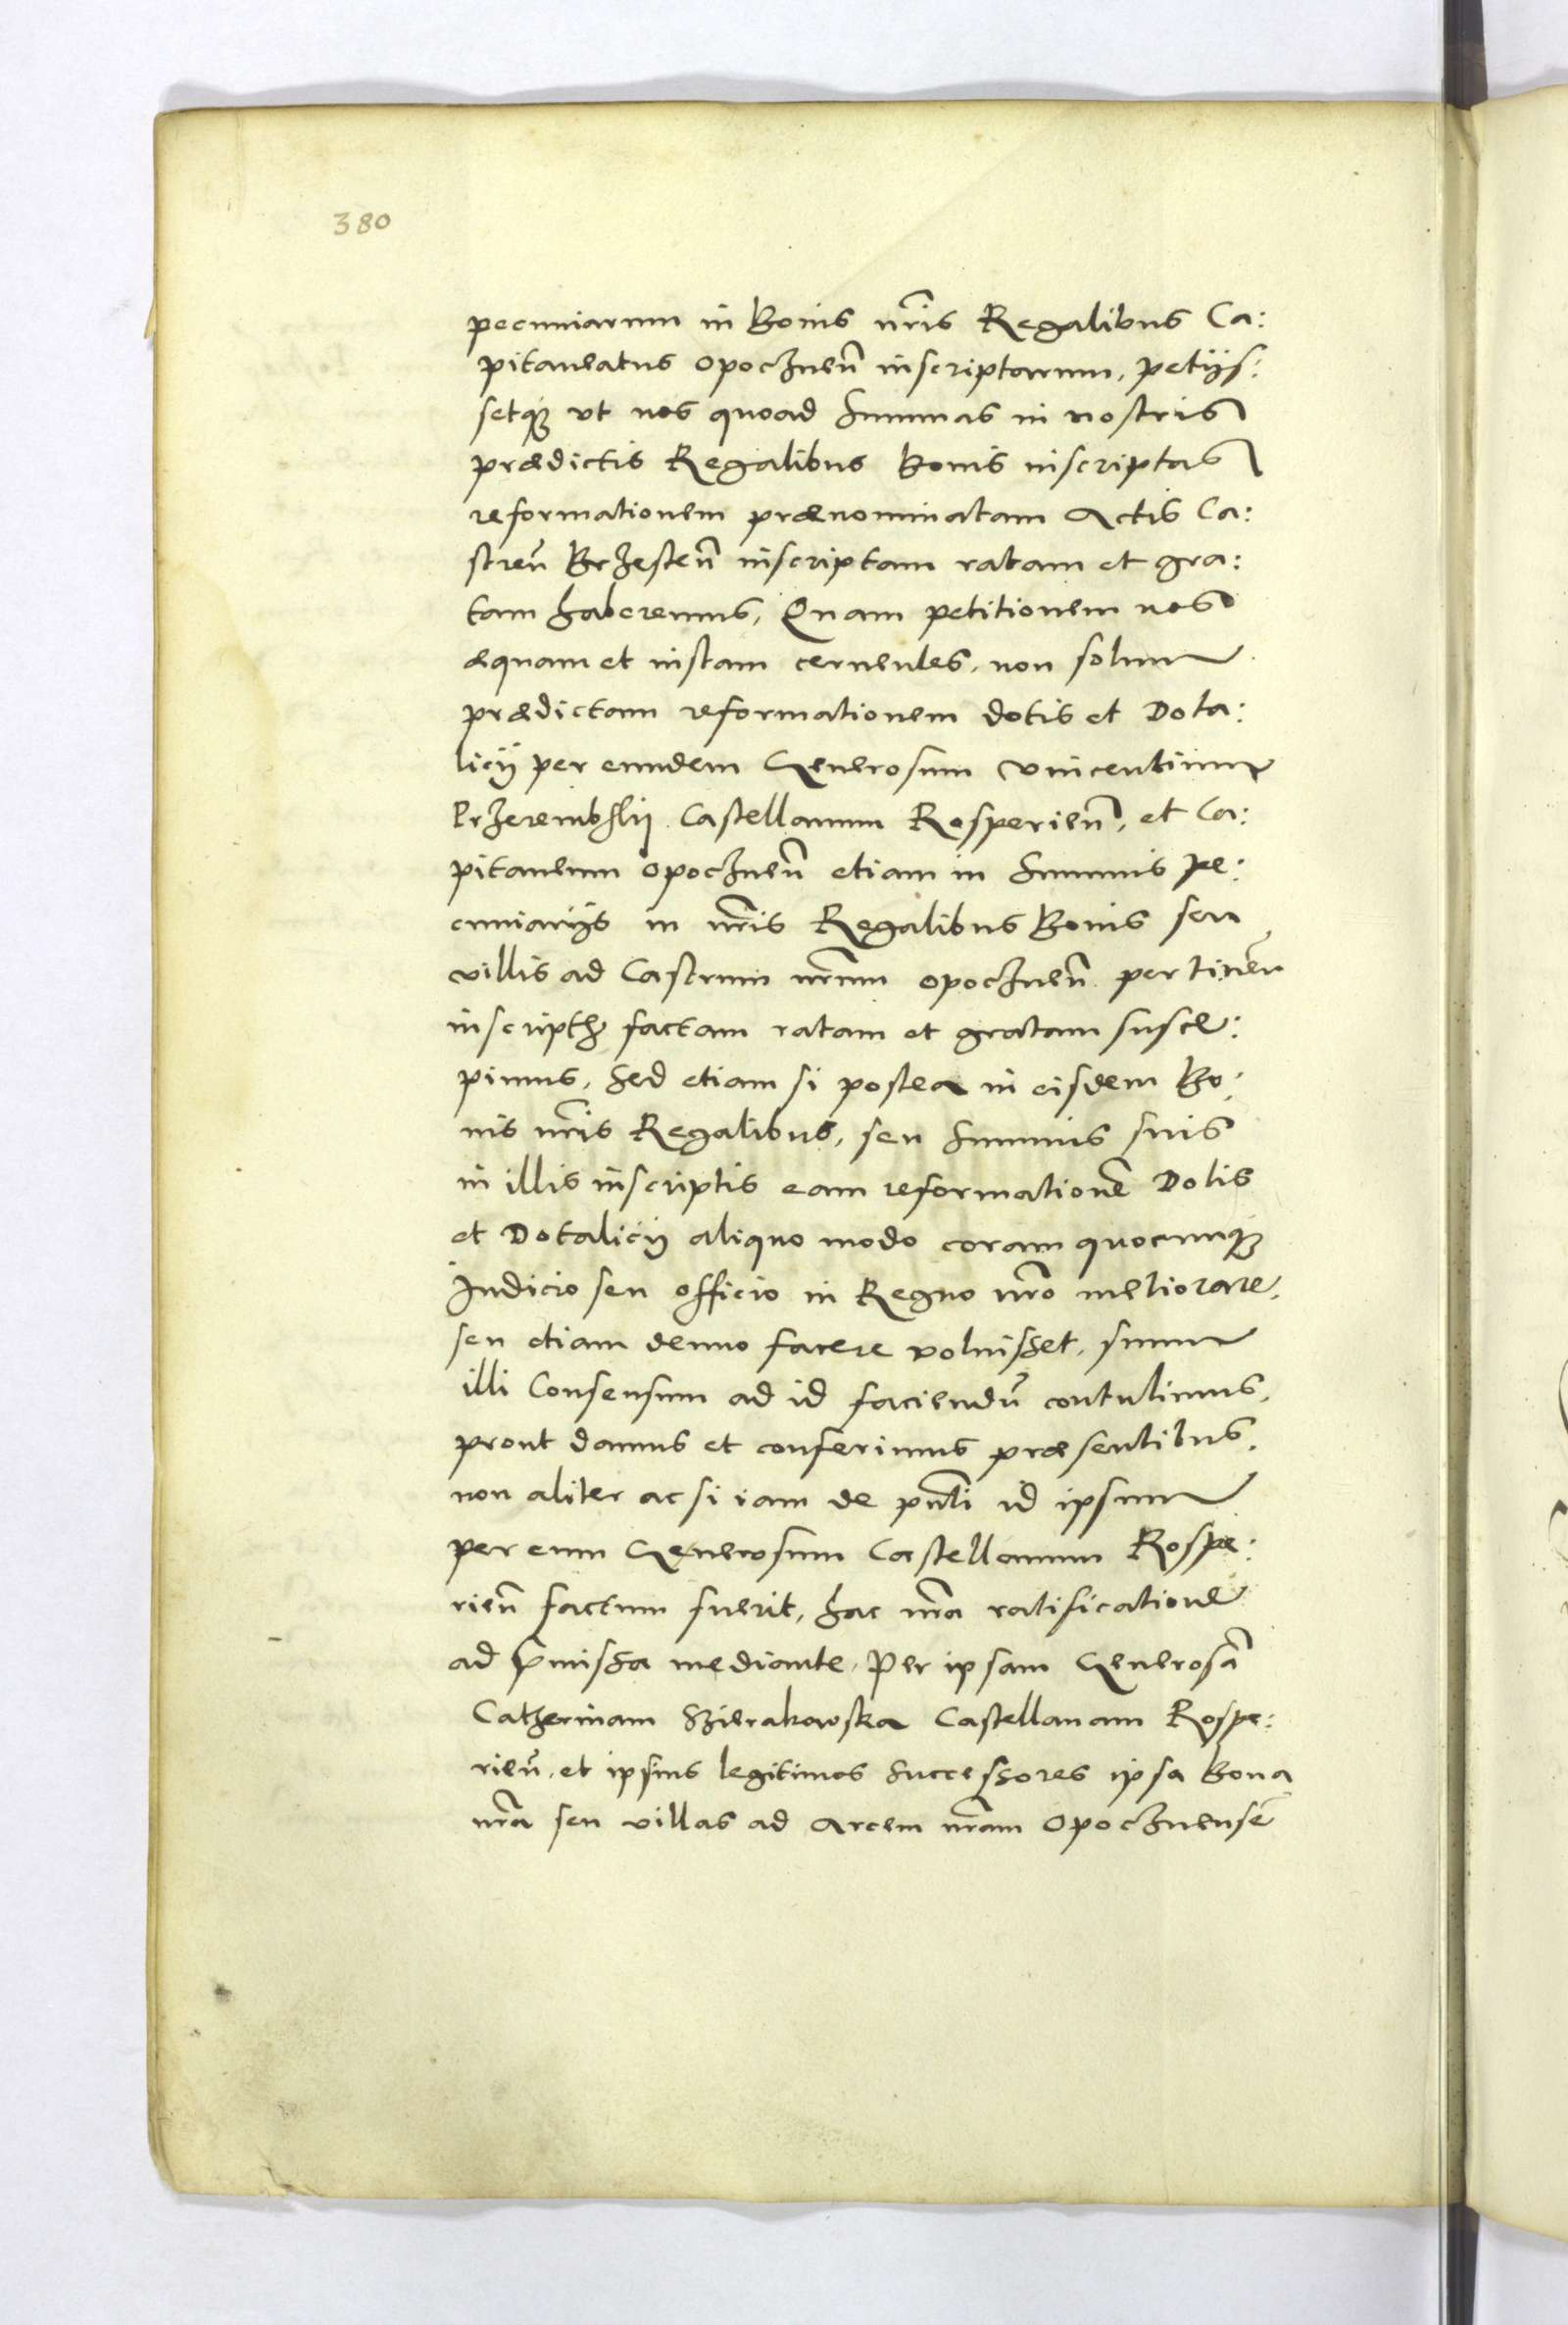 380
pecuniarum in Bonis nr̃is Regalibus Ca:
pitaneatus Opocznen̄ inscriptarum, petijs:
setq₃ vt nos quoad summas in nostris
prædictis Regalibus bonis inscriptas
reformationem prænominatam Actis Ca:
stren̄ Brzesten̄ inscriptam ratam et gra:
tam haberemus, Quam petitionem nos
æquam et iustam cernentes, non solum
prædictam reformationem dotis et Dota:
licij per eundem Generosum Vincentium
Przerembsky Castellanum Rosperien̄, et Ca:
pitaneum Opocznen̄ etiam in summis pe:
cuniarijs in nr̃is Regalibus Bonis seu
villis ad Castrum nr̃um Opocznen̄ pertinen̄
inscriptis factam ratam et gratam susce:
pimus, Sed etiam si postea in eisdem Bo:
nis nr̃is Regalibus, seu summis suis
in illis inscriptis eam reformationē Dotis
et Dotalicij aliquo modo coram quocumq₃
Iudicio seu officio in Regno nr̃o meliorare,
seu etiam denuo facere voluisset, suum
illi Consensum ad id faciendū contulimus,
prout damus et conferimus præsentibus,
non aliter ac si iam de pn̄ti id ipsum
per eum Generosum Castellanum Rospe:
rien̄ factum fuerit, hac nr̃a ratificatione
ad p̄missa mediante, Per ipsam Generosā
Catherinam Szierakowska Castellanam Rospe:
rien̄, et ipsius legitimos successores ipsa Bona
nr̃a seu villas ad Arcem nr̃am Opocznensē